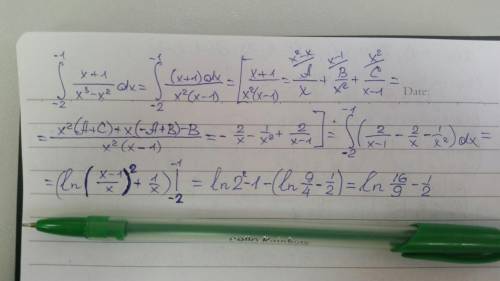 ∫_{-2}^{-1} (x+1)/(x³-x²) dx = ∫_{-2}^{-1} (x+1)dx/(x²(x-1)) = [(x+1)/(x²(x-1)) = ^{x²-x/}A/x + ^{x-1/}B/x² + ^{x²/}C/(x-1) =
Date:
= (x²(A+C)+x(-A+B)-B)/(x²(x-1)) = -2/x - 1/x² + 2/(x-1)] = ∫_{-2}^{-1} (2/(x-1) - 2/x - 1/x²)dx =
= (ln((x-1)/x)² + 1/x)|_{-2}^{-1} = ln2²-1-(ln 9/4 - 1/2) = ln 16/9 - 1/2